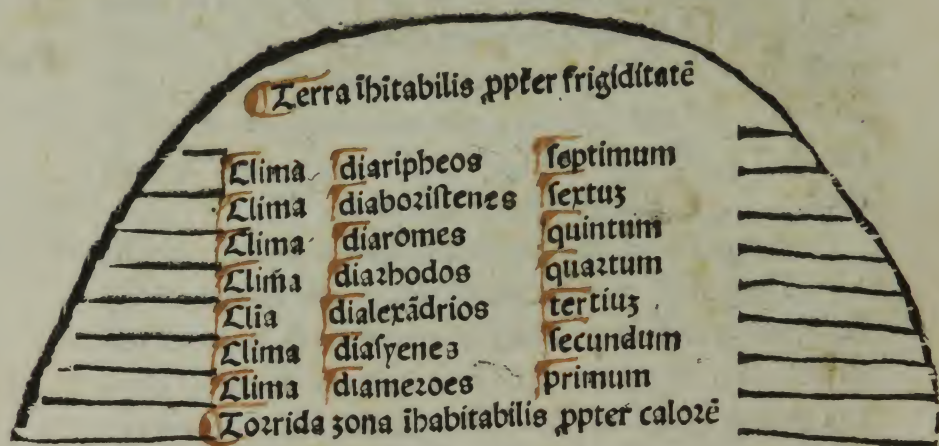 Terra ihitabilis ꝓpter frigiditatē
Clima diaripheos septimum
Clima diaboristenes sextuꝫ
Clima diaromes quintum
Clim̄a diarhodos quartum
Clia dialexādrios tertiuꝫ
Clima diasyenes secundum
Clima diameroes primum
Torrida zona ihabitabilis ꝓpter calorē